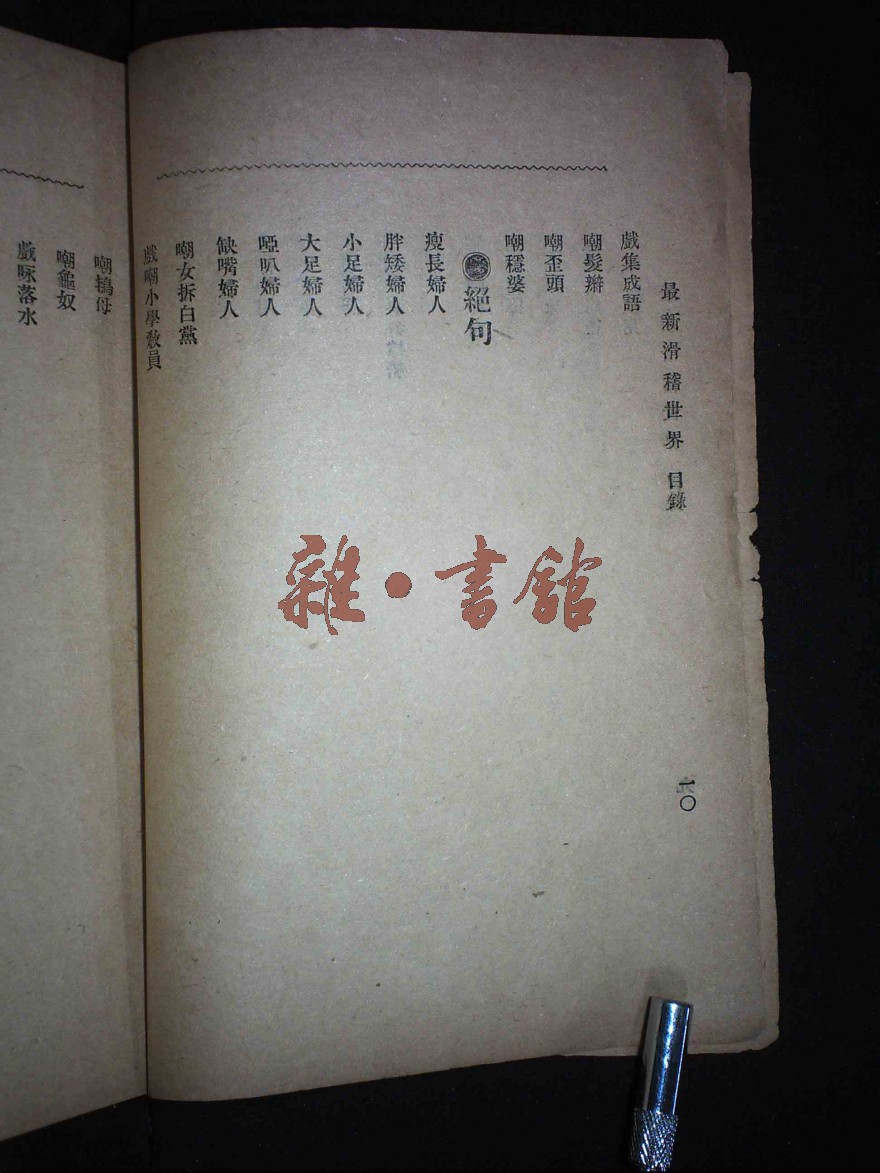 最新滑稽世界 目錄
一〇
戲集成語
嘲髮辮
嘲歪頭
嘲穩婆
絕句
瘦長婦人
胖矮婦人
小足婦人
大足婦人
啞叭婦人
缺嘴婦人
嘲女拆白黨
戲嘲小學教員
嘲鴇母
嘲龜奴
戲咏落水
雜·書館